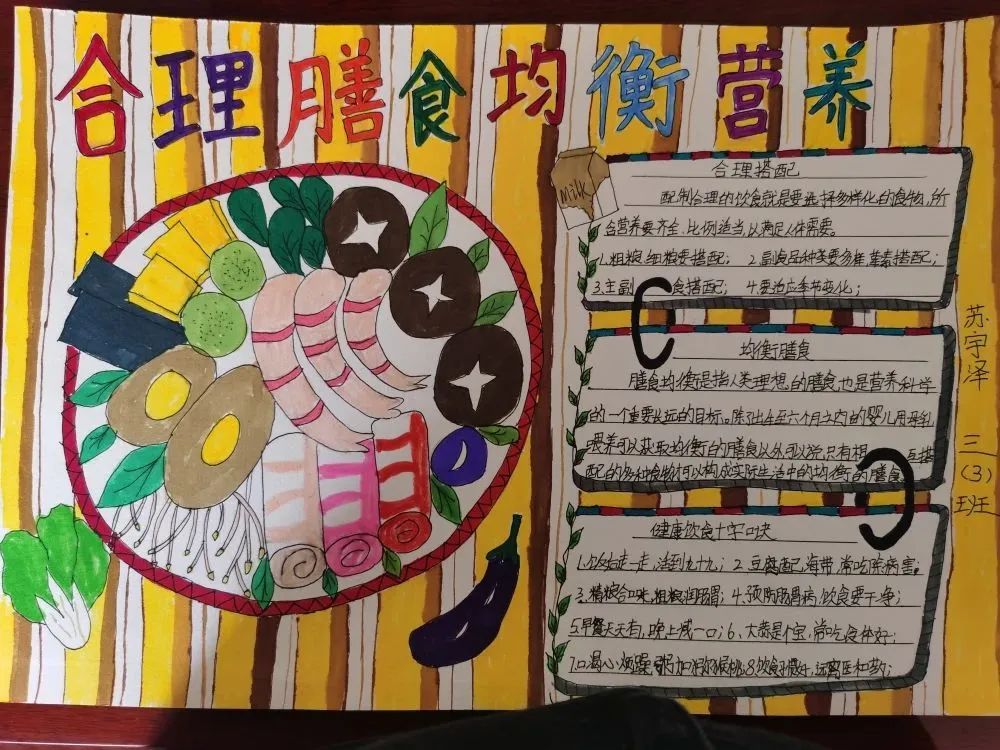 合理膳食均衡营养
Milk
合理搭配
配制合理的饮食就是要选择多样化的食物,所
含营养要齐全,比例适当,以满足人体需要。
1.粗粮、细粮要搭配; 2.副食品种类要多样,荤素搭配;
3.主副食搭配; 4.要适应季节变化;
均衡膳食
膳食均衡是指人类理想的膳食,也是营养科学
的一个重要长远的目标。除了出4至六个月之内的婴儿用母乳
喂养可以获取均衡的膳食以外可以说,只有相搭
配的多种食物才可以构成实际生活中的均衡的膳食
健康饮食十字口诀
1.饭后走一走,活到九十九; 2.豆腐配海带,常吃除病害;
3.精粮合口味,粗粮润肠胃; 4.预防肠胃病,饮食要干净;
5.早餐天天有,晚上减一口; 6.大蒜是个宝,常吃身体好;
7.口渴心烦躁,粥加猕猴桃; 8.饮食习惯好,远离医和药;
苏宇泽
三(3)班